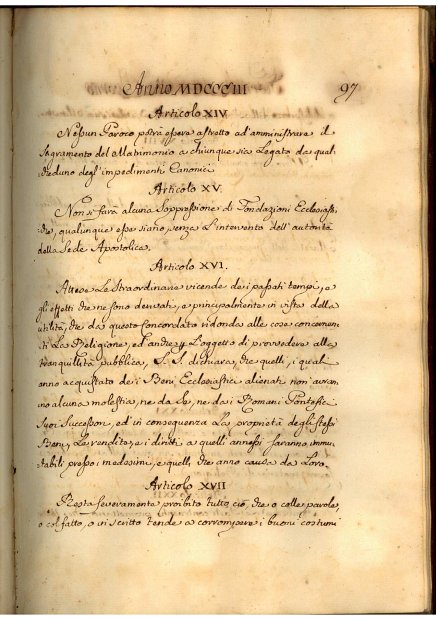 Anno MDCCCIII 97
Articolo XIV
Nessun Paroco potrà essere astretto ad' amministrare il
Sagramento del Matrimonio a chiunque sia Legato da qual
cheduno degl' impedimenti Canonici
Articolo XV.
Non si farà alcuna Soppressione di Fondazioni Ecclesiasti
che, qualunque esse siano, senza L'intervento dell' autorità
della Sede Apostolica.
Articolo XVI.
Attese Le Straordinarie vicende dei passati tempi, e
gli effetti che ne sono derivati, e principalmente in vista della
utilità, che da questo Concordato ridonda alle cose concernen
ti La Religione, ed anche L'oggetto di provvedere alla
tranquillità pubblica, S. S. dichiara, che quelli, i quali
anno acquistato dei Beni Ecclesiastici alienati non avran
no alcuna molestia, ne da Se, ne dai Romani Pontefici
Suoi Successori, ed in conseguenza La proprietà degli stessi
Beni, Le rendite, e i diritti a quelli annessi saranno immu
tabili presso i medesimi, e quelli che anno causa da Loro.
Articolo XVII
Resta severamente proibito tutto ciò, che o colle parole,
o col fatto, o in scritto tende a corrompere i buoni costumi